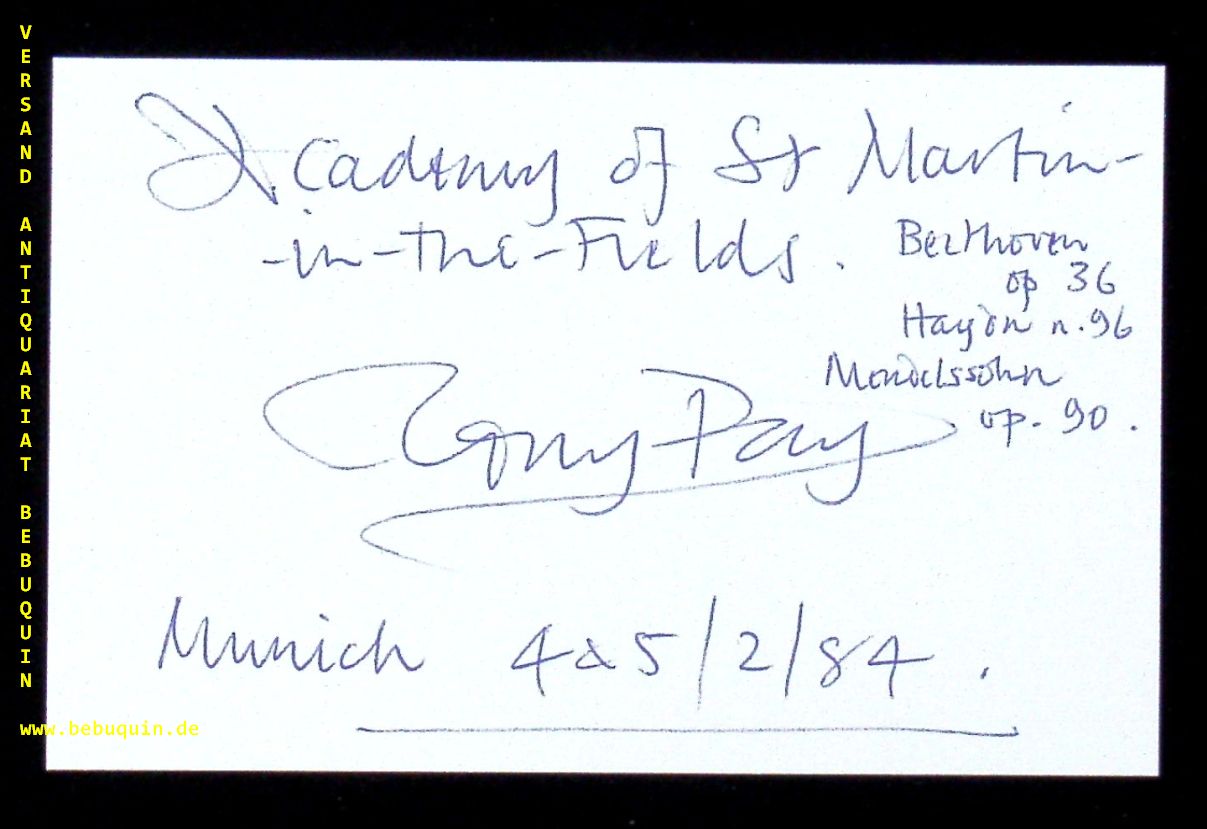 Academy of St Martin-
-in-the-Fields.
Beethoven
op 36
Haydn n.96
Mendelssohn
op. 90.
Tony Pay
Munich 4 & 5/2/84.
VERSAND ANTIQUARIAT BEBUQUIN
www.bebuquin.de